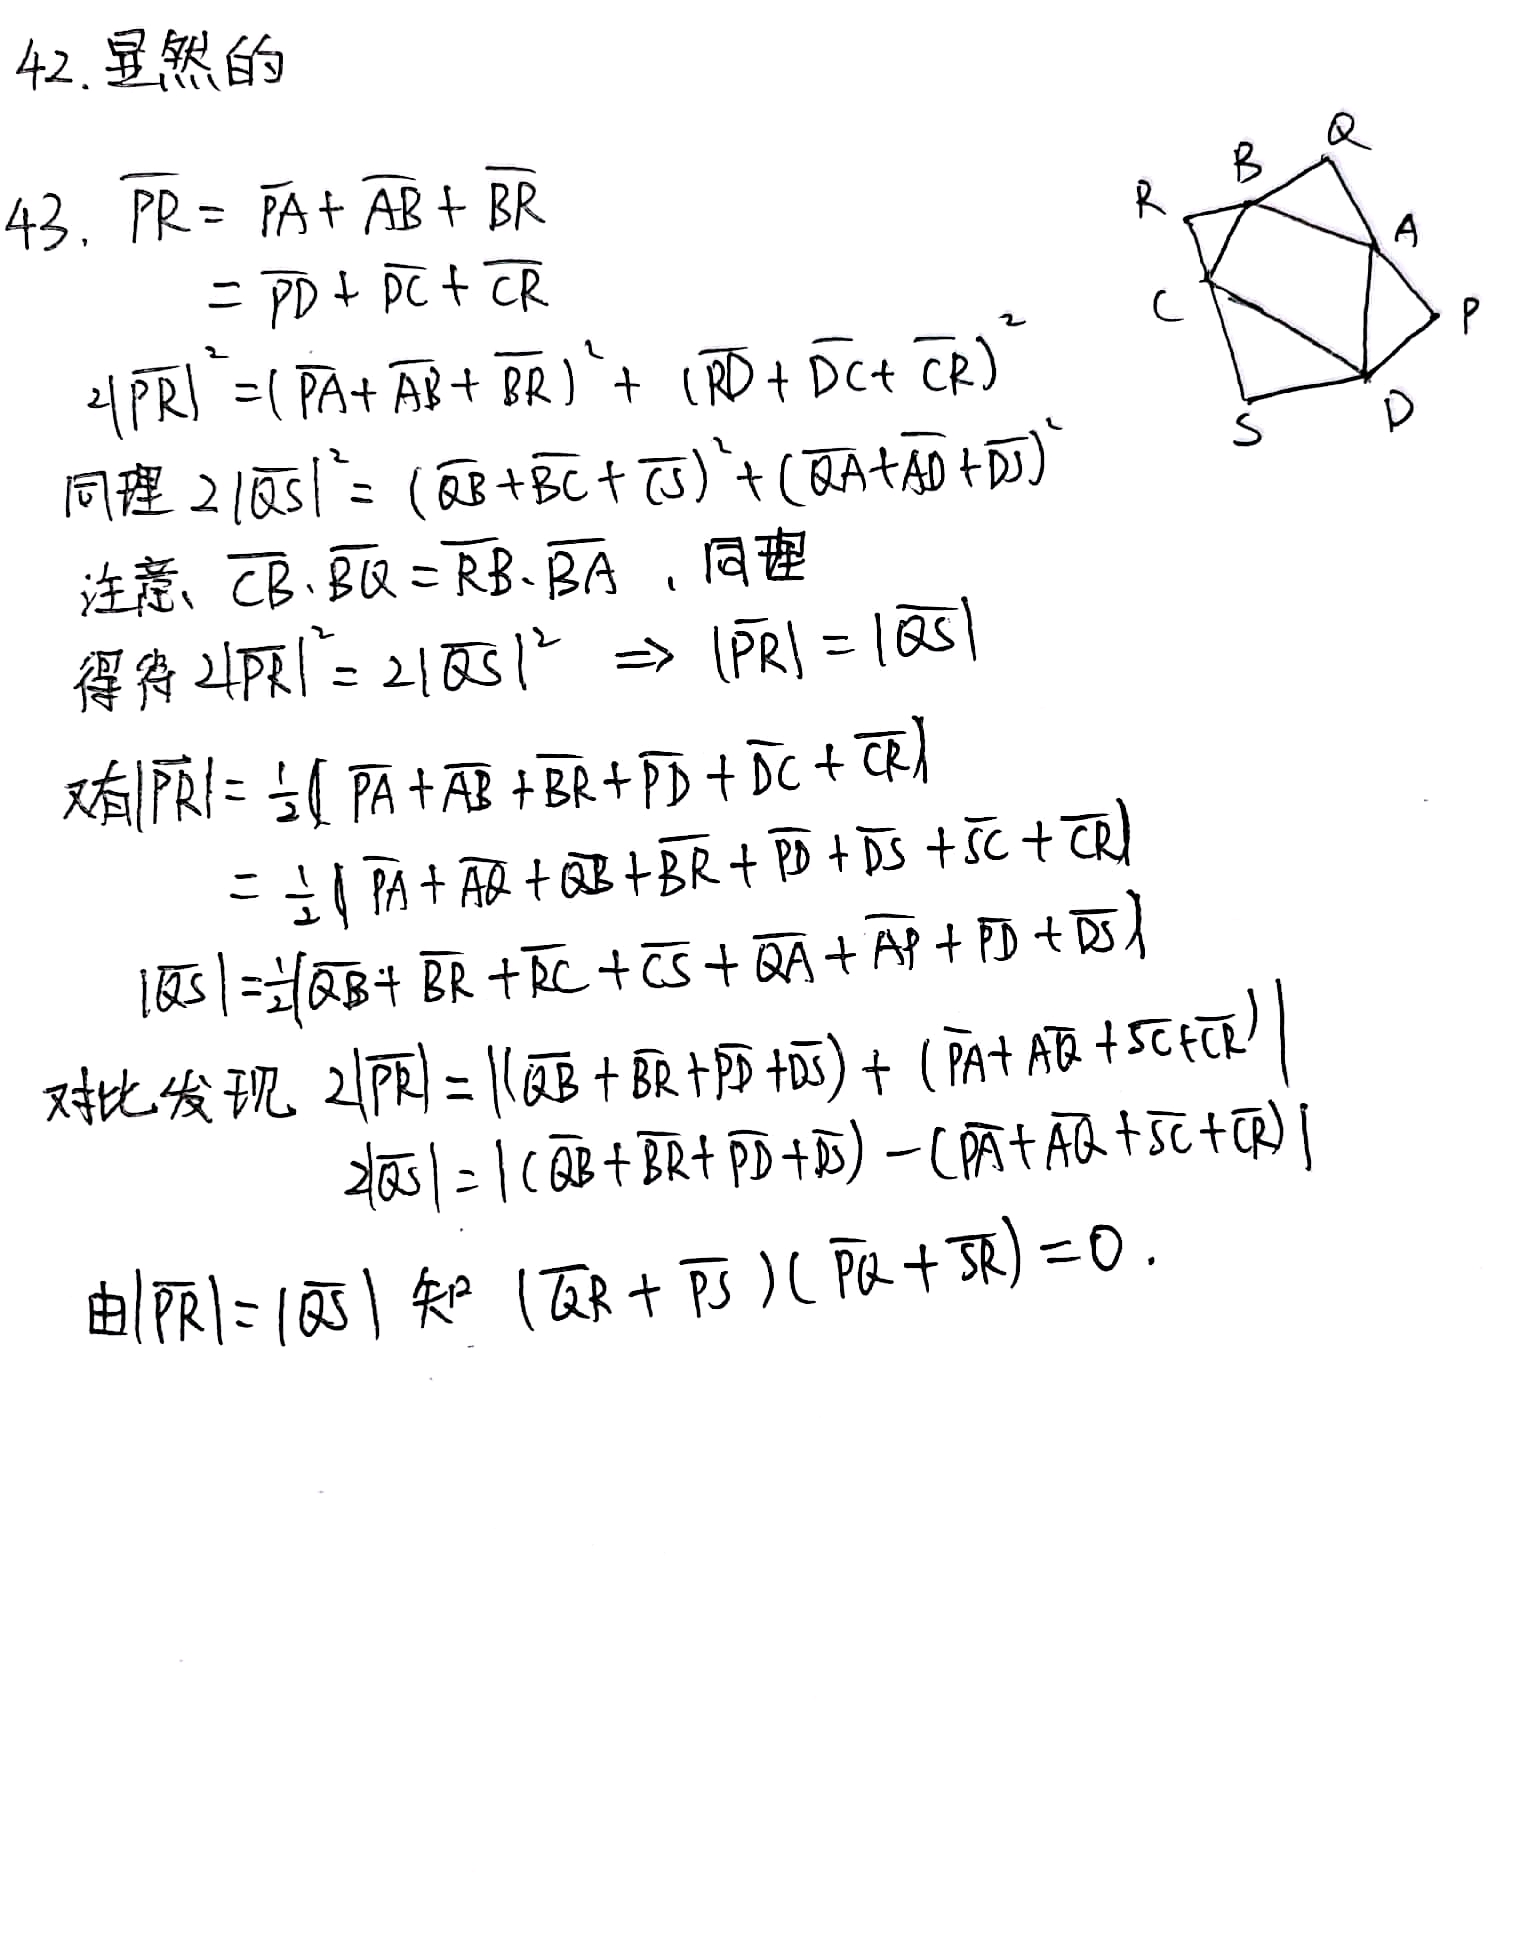 42. 显然的
43. \overline{PR} = \overline{PA} + \overline{AB} + \overline{BR}
= \overline{PD} + \overline{DC} + \overline{CR}
2|\overline{PR}|^2 = (\overline{PA} + \overline{AB} + \overline{BR})^2 + (\overline{RD} + \overline{DC} + \overline{CR})^2
同理 2|\overline{QS}|^2 = (\overline{QB} + \overline{BC} + \overline{CS})^2 + (\overline{QA} + \overline{AD} + \overline{DS})^2
注意、\overline{CB}·\overline{BQ} = \overline{RB}·\overline{BA}、同理
得 2|\overline{PR}|^2 = 2|\overline{QS}|^2 ⇒ |\overline{PR}| = |\overline{QS}|
又有|\overline{PR}| = \frac{1}{2}|\overline{PA} + \overline{AB} + \overline{BR} + \overline{PD} + \overline{DC} + \overline{CR}|
= \frac{1}{2}|\overline{PA} + \overline{AQ} + \overline{QB} + \overline{BR} + \overline{PD} + \overline{DS} + \overline{SC} + \overline{CR}|
|\overline{QS}| = \frac{1}{2}|\overline{QB} + \overline{BR} + \overline{RC} + \overline{CS} + \overline{QA} + \overline{AP} + \overline{PD} + \overline{DS}|
对比发现 2|\overline{PR}| = |(\overline{QB} + \overline{BR} + \overline{PD} + \overline{DS}) + (\overline{PA} + \overline{AQ} + \overline{SC} + \overline{CR})|
2|\overline{QS}| = |(\overline{QB} + \overline{BR} + \overline{PD} + \overline{DS}) - (\overline{PA} + \overline{AQ} + \overline{SC} + \overline{CR})|
由|\overline{PR}| = |\overline{QS}| 知 (\overline{QR} + \overline{PS})(\overline{PQ} + \overline{SR}) = 0.
Q
B
R
A
C
P
D
S